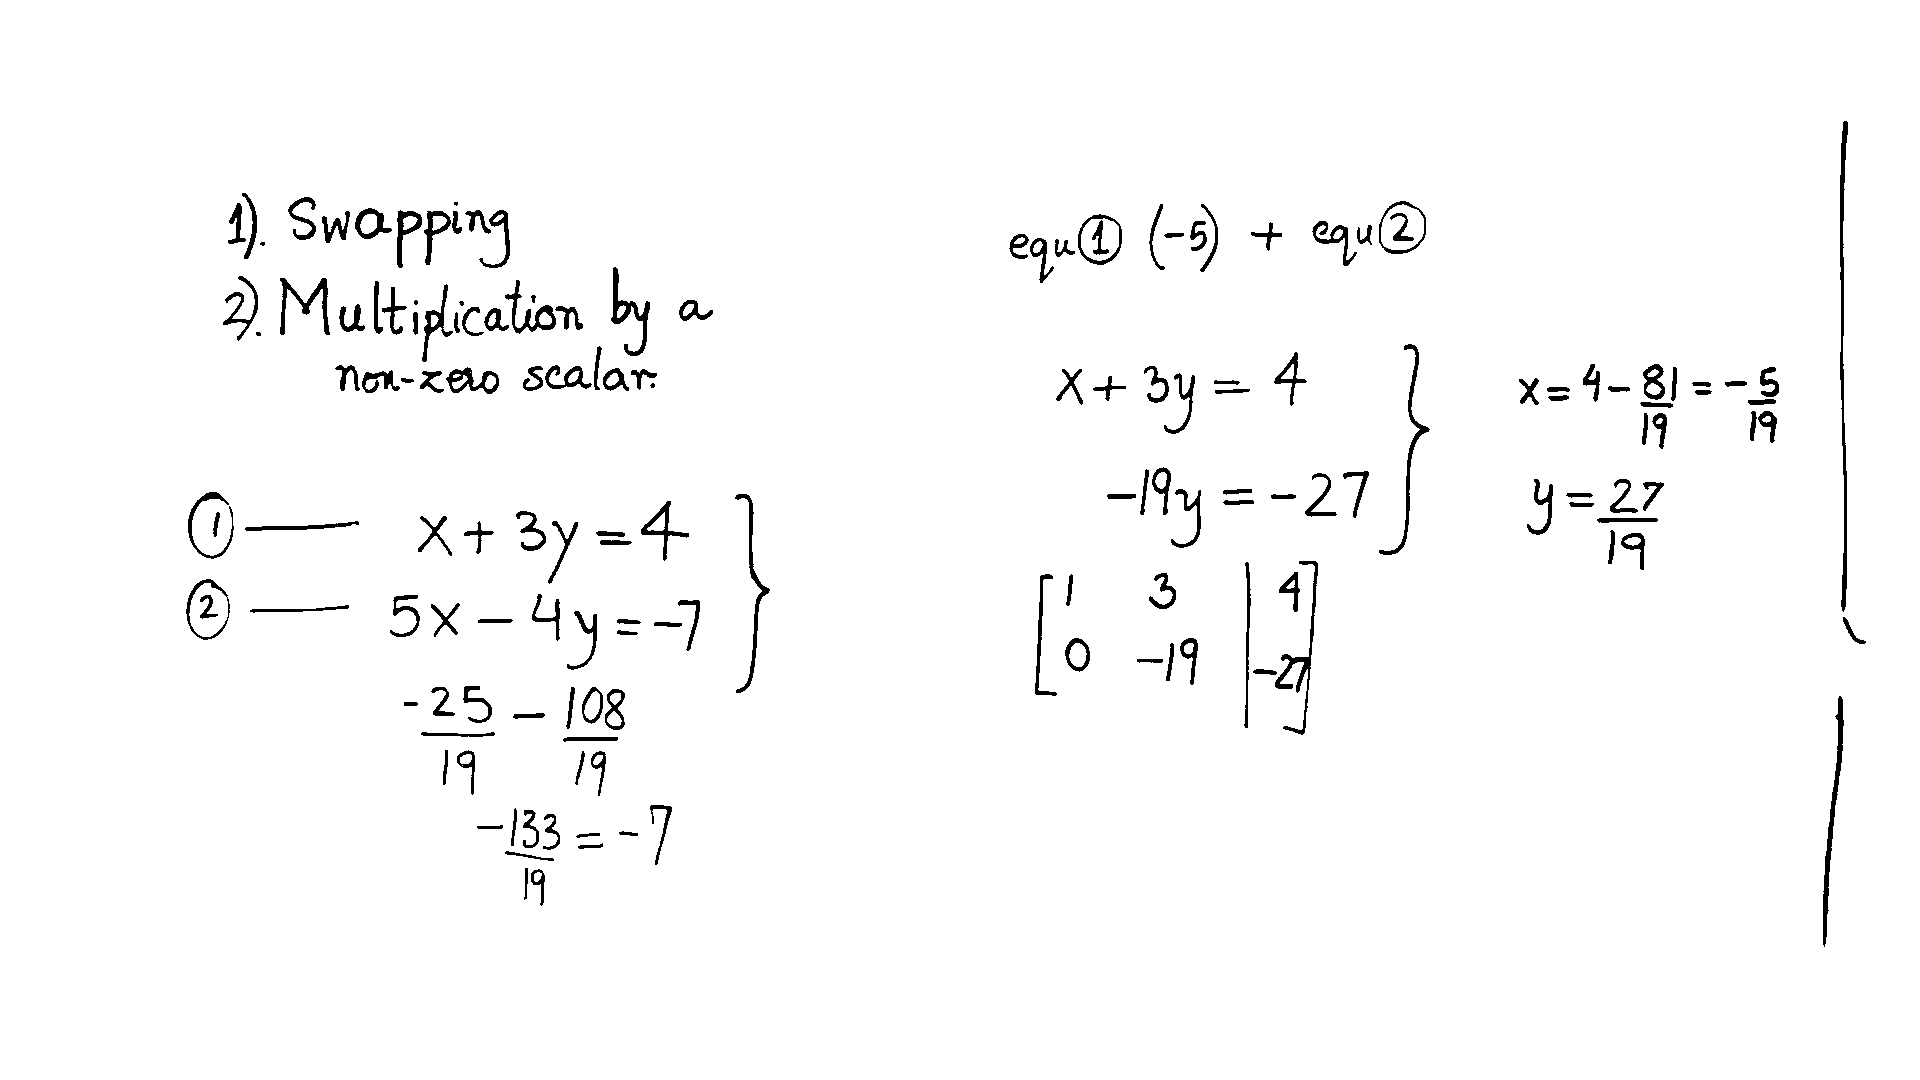 1). Swapping
2). Multiplication by a
non-zero scalar.
① — x + 3y = 4
② — 5x - 4y = -7
-25/19 - 108/19
-133/19 = -7
equ① (-5) + equ②
x + 3y = 4
-19y = -27
x = 4 - 81/19 = -5/19
y = 27/19
[1 3 | 4]
[0 -19 | -27]